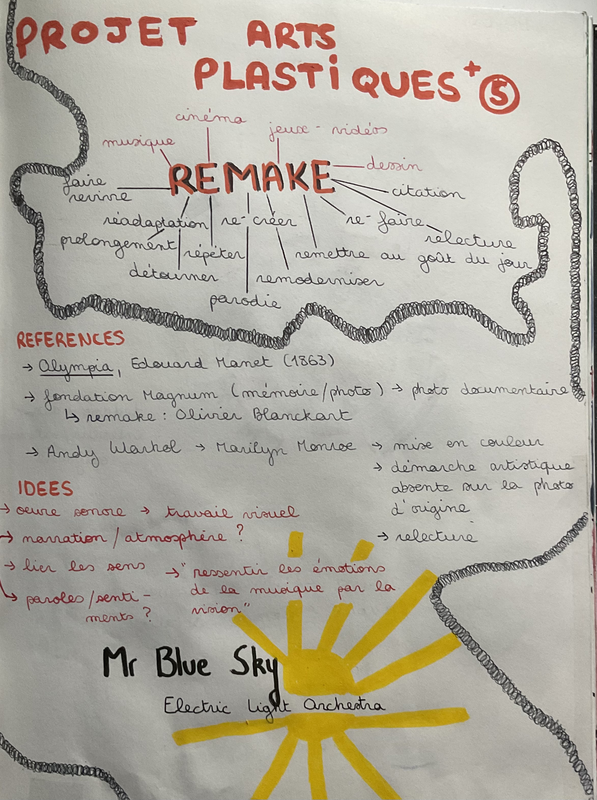 PROJET ARTS
PLASTIQUES + 5
cinéma
musique
jeux-vidéos
REMAKE
dessin
faire
revivre
citation
réadaptation
re-créer
re-faire
prolongement
répéter
remettre au goût du jour
relecture
détourner
remoderniser
parodie
REFERENCES
→ Olympia, Edouard Manet (1863)
→ fondation Magnum (mémoire/photo) → photo documentaire
↳ remake : Olivier Blanckart
→ Andy Warhol → Marilyn Monroe → mise en couleur
→ démarche artistique
absente sur la photo
d'origine
→ relecture
IDEES
→ oeuvre sonore → travail visuel
→ narration / atmosphère ?
→ lier les sens
→ "ressentir les émotions
de la musique par la
vision"
↳ paroles/senti-
ments ?
Mr Blue Sky
Electric Light Orchestra